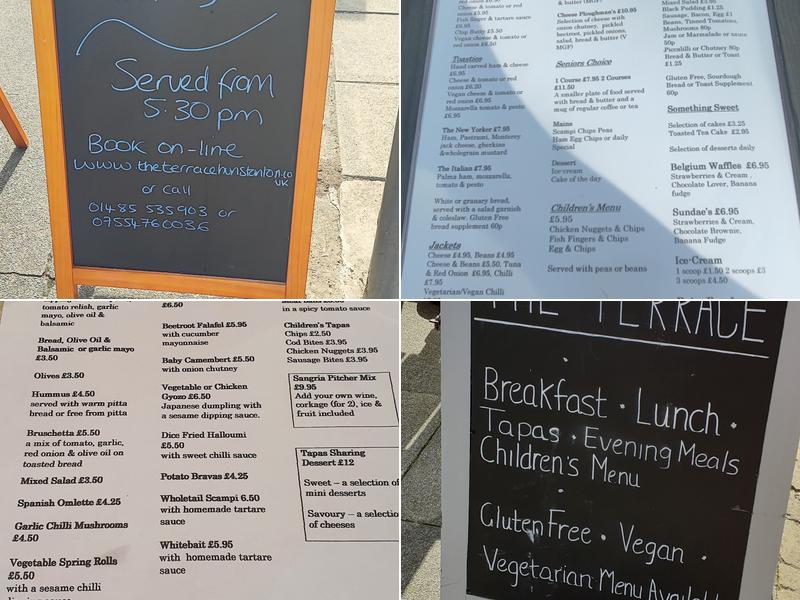 Served from
5.30 pm
Book on-line
www.theterracehunstanton.co
UK
or call
01485 535903 or
07554760036
Cheese & tomato or red
onion £5.95
Fish finger & tartare sauce
£6.95
Chip Butty £3.50
Vegan cheese & tomato or
red onion £6.50
Toasties
Hand carved ham & cheese
£6.95
Cheese & tomato or red
onion £6.20
Vegan cheese & tomato or
red onion £6.95
Mozzarella tomato & pesto
£6.95
The New Yorker £7.95
Ham, Pastrami, Monterey
jack cheese, gherkins
&wholegrain mustard
The Italian £7.95
Palma ham, mozzarella,
tomato & pesto
White or granary bread,
served with a salad garnish
& coleslaw. Gluten Free
bread supplement 60p
Jackets
Cheese £4.95, Beans £4.95
Cheese & Beans £5.50, Tuna
& Red Onion £6.95, Chilli
£7.95
Vegetarian/Vegan Chilli
& butter (MGF)
Cheese Ploughman's £10.95
Selection of cheese with
onion chutney, pickled
beetroot, pickled onions,
salad, bread & butter (V
MGF)
Seniors Choice
1 Course £7.95 2 Courses
£11.50
A smaller plate of food served
with bread & butter and a
mug of regular coffee or tea
Mains
Scampi Chips Peas
Ham Egg Chips or daily
Special
Dessert
Ice cream
Cake of the day
Children's Menu
£5.95
Chicken Nuggets & Chips
Fish Fingers & Chips
Egg & Chips
Served with peas or beans
Mixed Salad £3.95
Black Pudding £1.25
Sausage, Bacon, Egg £1
Beans, Tinned Tomatoes,
Mushrooms 80p
Jam or Marmalade or sauce
50p
Piccalilli or Chutney 80p
Bread & Butter or Toast
£1.25
Gluten Free, Sourdough
Bread or Toast Supplement
60p
Something Sweet
Selection of cakes £3.25
Toasted Tea Cake £2.95
Selection of desserts daily
Belgium Waffles £6.95
Strawberries & Cream ,
Chocolate Lover, Banana
fudge
Sundae's £6.95
Strawberries & Cream,
Chocolate Brownie,
Banana Fudge
Ice-Cream
1 scoop £1.50 2 scoops £3
3 scoops £4.50
tomato relish, garlic
mayo, olive oil &
balsamic
Bread, Olive Oil &
Balsamic or garlic mayo
£3.50
Olives £3.50
Hummus £4.50
served with warm pitta
bread or free from pitta
Bruschetta £5.50
a mix of tomato, garlic,
red onion & olive oil on
toasted bread
Mixed Salad £3.50
Spanish Omlette £4.25
Garlic Chilli Mushrooms
£4.50
Vegetable Spring Rolls
£5.50
with a sesame chilli
£6.50
Beetroot Falafel £5.95
with cucumber
mayonnaise
Baby Camembert £5.50
with onion chutney
Vegetable or Chicken
Gyozo £6.50
Japanese dumpling with
a sesame dipping sauce.
Dice Fried Halloumi
£5.50
with sweet chilli sauce
Potato Bravas £4.25
Wholetail Scampi 6.50
with homemade tartare
sauce
Whitebait £5.95
with homemade tartare
sauce
in a spicy tomato sauce
Children's Tapas
Chips £2.50
Cod Bites £3.95
Chicken Nuggets £3.95
Sausage Bites £3.95
Sangria Pitcher Mix
£9.95
Add your own wine,
corkage (for 2), ice &
fruit included
Tapas Sharing
Dessert £12
Sweet – a selection of
mini desserts
Savoury – a selection
of cheeses
THE TERRACE
Breakfast · Lunch ·
Tapas · Evening Meals
Children's Menu
Gluten Free · Vegan ·
Vegetarian Menu Availabl